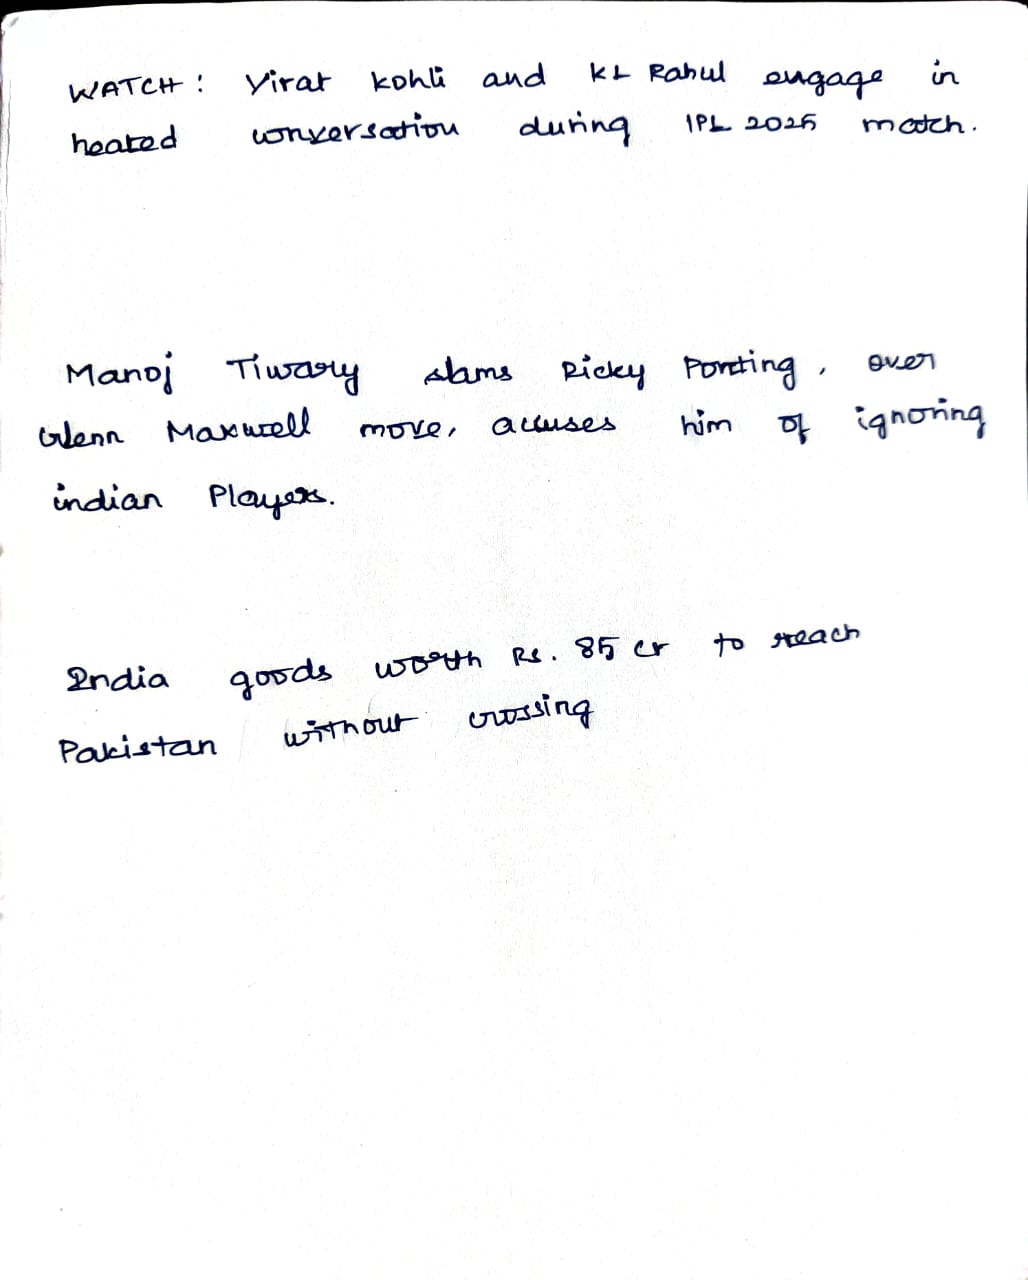 WATCH: Virat kohli and KL Rahul engage in
heated conversation during IPL 2025 match.
Manoj Tiwary slams Ricky Ponting, over
Glenn Maxwell move, accuses him of ignoring
indian Players.
India goods worth Rs. 85 cr to reach
Pakistan without crossing